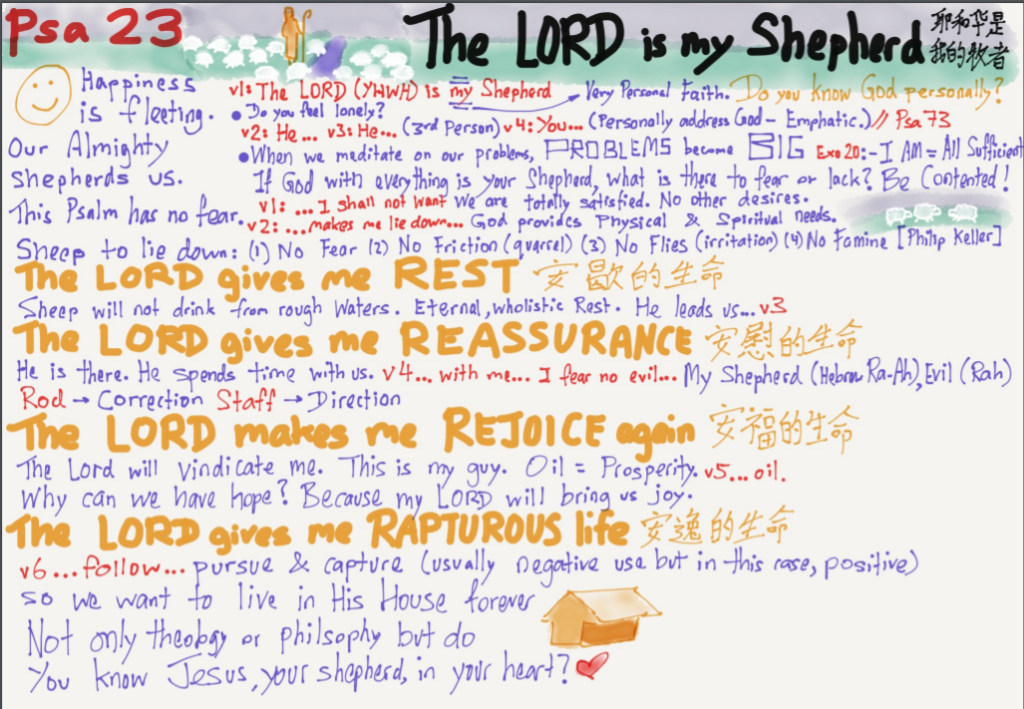 Psa 23
The LORD is my Shepherd
耶和华是
我的牧者
Happiness
is fleeting.
Our Almighty
Shepherds us.
This Psalm has no fear.
v1: The LORD (YHWH) is my Shepherd → Very Personal Faith. Do you know God personally?
• Do you feel lonely?
v2: He... v3: He... (3rd Person) v4: You... (Personally address God - Emphatic.) // Psa 73
• When we meditate on our problems, PROBLEMS become BIG Exo 20:- I AM = All Sufficient
If God with everything is your Shepherd, what is there to fear or lack? Be Contented!
v1: ... I shall not want We are totally satisfied. No other desires.
v2: ...makes me lie down... God provides Physical & Spiritual needs.
Sheep to lie down: (1) No Fear (2) No Friction (quarrel) (3) No Flies (irritation) (4) No Famine [Philip Keller]
The LORD gives me REST 安歇的生命
Sheep will not drink from rough waters. Eternal, wholistic Rest. He leads us... v3
The LORD gives me REASSURANCE 安慰的生命
He is there. He spends time with us. v4... with me... I fear no evil... My Shepherd (Hebrew Ra-Ah), Evil (Rah)
Rod → Correction Staff → Direction
The LORD makes me REJOICE again 安福的生命
The Lord will vindicate me. This is my guy. Oil = Prosperity. v5... oil.
Why can we have hope? Because my LORD will bring us joy.
The LORD gives me RAPTUROUS life 安逸的生命
v6 ... follow... pursue & capture (usually negative use but in this case, positive)
so we want to live in His House forever
Not only theology or philsophy but do
You know Jesus, your shepherd, in your heart?